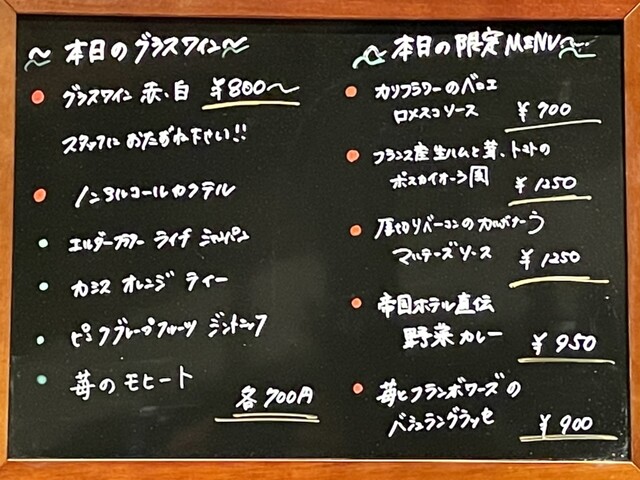 ～本日のグラスワイン～
グラスワイン 赤、白 ¥800～
スタッフに おたずね下さい!!
ノンアルコールカクテル
エルダーフラワー ライチ シャンパン
カシス オレンジ ティー
ピンクグレープフルーツ ジントニック
苺のモヒート
各700円
～本日の限定MENU～
カリフラワーのベニエ
ロメスコソース ¥900
フランス産生ハムと茸、トマトの
ボスカイオーラ風 ¥1250
厚切りベーコンのカルボナーラ
マルテーズソース ¥1250
帝国ホテル直伝
野菜カレー ¥950
苺とフランボワーズの
バシュラングラッセ ¥900